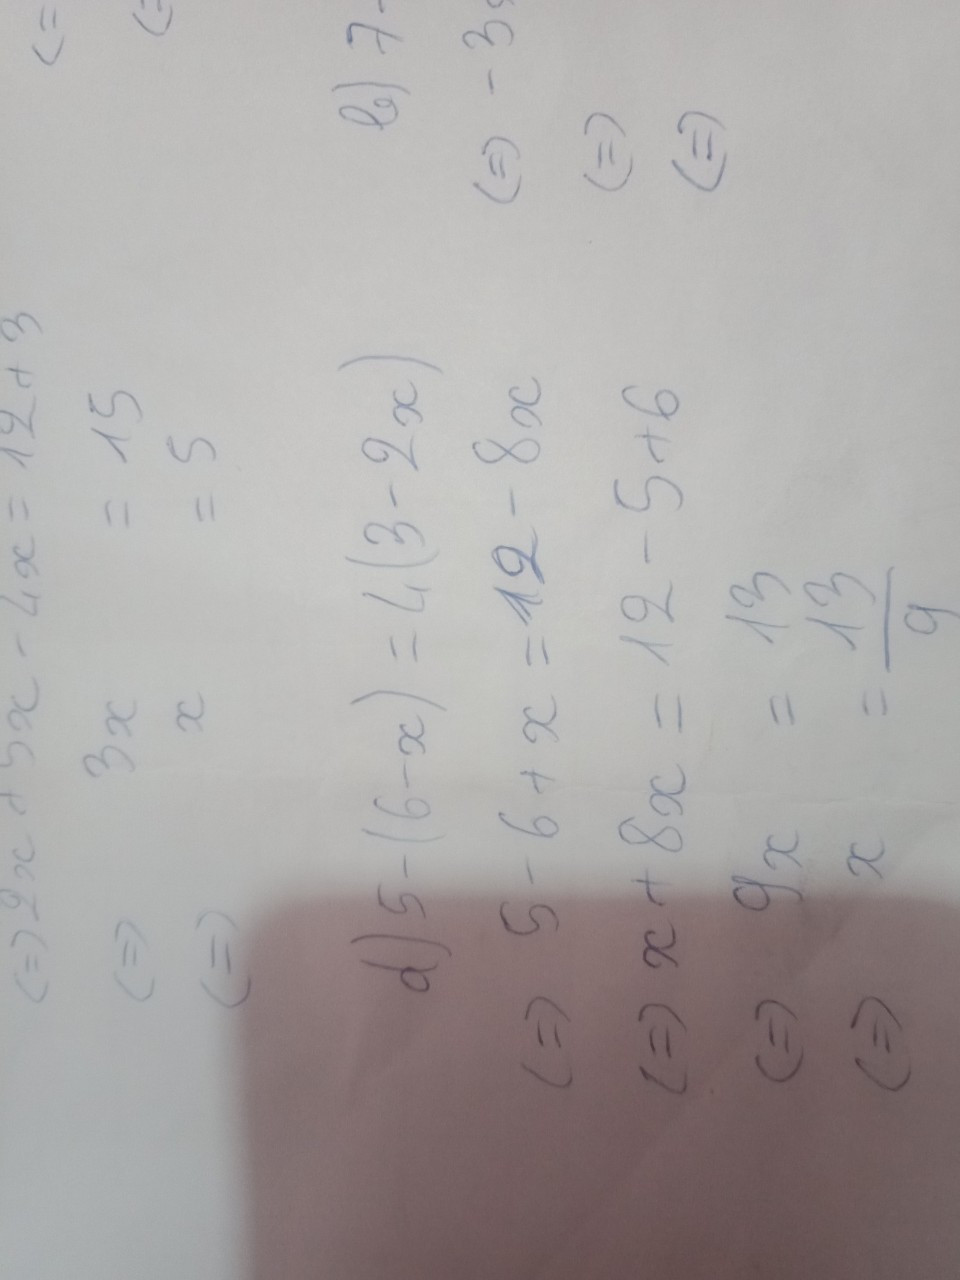 (=) 2x + 5x - 4x = 12 + 3
(=) 3x = 15
(=) x = 5
d) 5 - (6 - x) = 4(3 - 2x)
(=) 5 - 6 + x = 12 - 8x
(=) x + 8x = 12 - 5 + 6
(=) 9x = 13
(=) x = 13/9
(=
(=
b) 7 -
(=) - 3
(=)
(=)